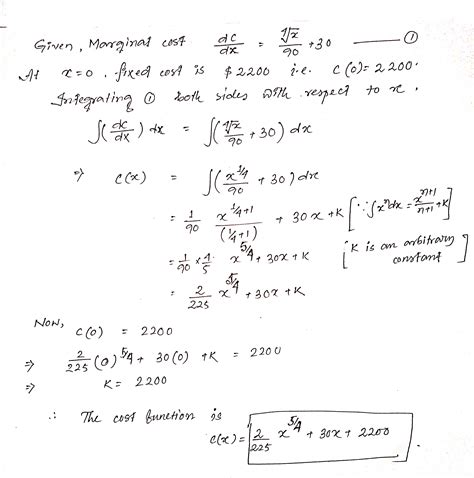 Given, Marginal cost dc/dx = ∜x/90 + 30 —— ①
At x=0, fixed cost is $2200 i.e. c(0)=2200.
Integrating ① both sides with respect to x.
∫(dc/dx) dx = ∫(∜x/90 + 30) dx
⇒ c(x) = ∫(x^1/4/90 + 30) dx
= 1/90 x^1/4+1/(1/4+1) + 30x + K [∵ ∫x^n dx = x^n+1/n+1 + K]
= 1/90 × 4/5 x^5/4 + 30x + K [K is an arbitrary constant]
= 2/225 x^5/4 + 30x + K
Now, c(0) = 2200
⇒ 2/225 (0)^5/4 + 30(0) + K = 2200
⇒ K = 2200
∴ The cost function is
c(x) = 2/225 x^5/4 + 30x + 2200.